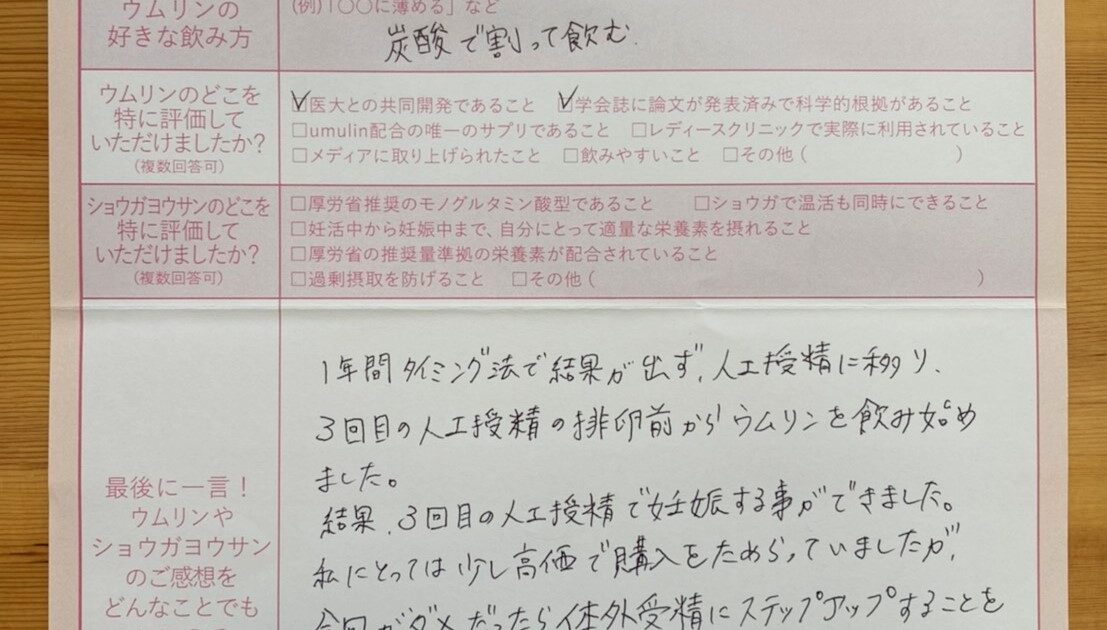 ウムリンの
好きな飲み方
(例)「〇〇に薄める」など
炭酸で割って飲む
ウムリンのどこを
特に評価して
いただけましたか?
(複数回答可)
☑医大との共同開発であること ☑学会誌に論文が発表済みで科学的根拠があること
□umulin配合の唯一のサプリであること □レディースクリニックで実際に利用されていること
□メディアに取り上げられたこと □飲みやすいこと □その他( )
ショウガヨウサンのどこを
特に評価して
いただけましたか?
(複数回答可)
□厚労省推奨のモノグルタミン酸型であること □ショウガで温活も同時にできること
□妊活中から妊娠中まで、自分にとって適量な栄養素を摂れること
□厚労省の推奨量準拠の栄養素が配合されていること
□過剰摂取を防げること □その他( )
最後に一言!
ウムリンや
ショウガヨウサン
のご感想を
どんなことでも
1年間タイミング法で結果が出ず、人工授精に移り、
3回目の人工授精の排卵前からウムリンを飲み始め
ました。
結果、3回目の人工授精で妊娠する事ができました。
私にとっては少し高価で購入をためらっていましたが、
今回がダメだったら体外受精にステップアップすることを